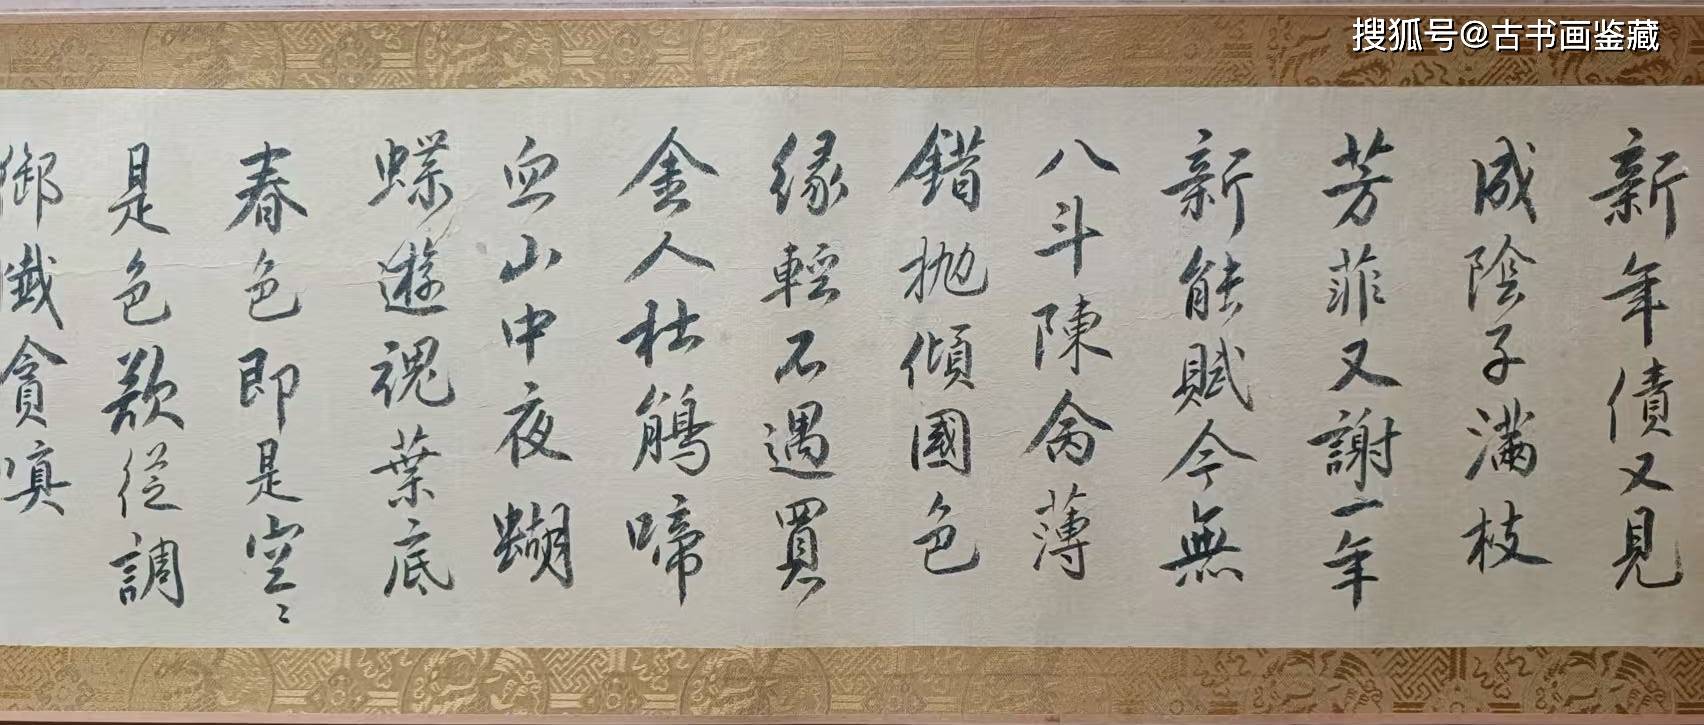 搜狐号@古书画鉴藏
新年債又見
成陰子滿枝
芳菲又謝一年
新能賦今無
八斗陳禽薄
錯拋傾國色
緣輕不遇買
金人杜鵑啼
血山中夜蝴
蝶遊魂葉底
春色即是空〻
是色歎從調
御懺貪嗔